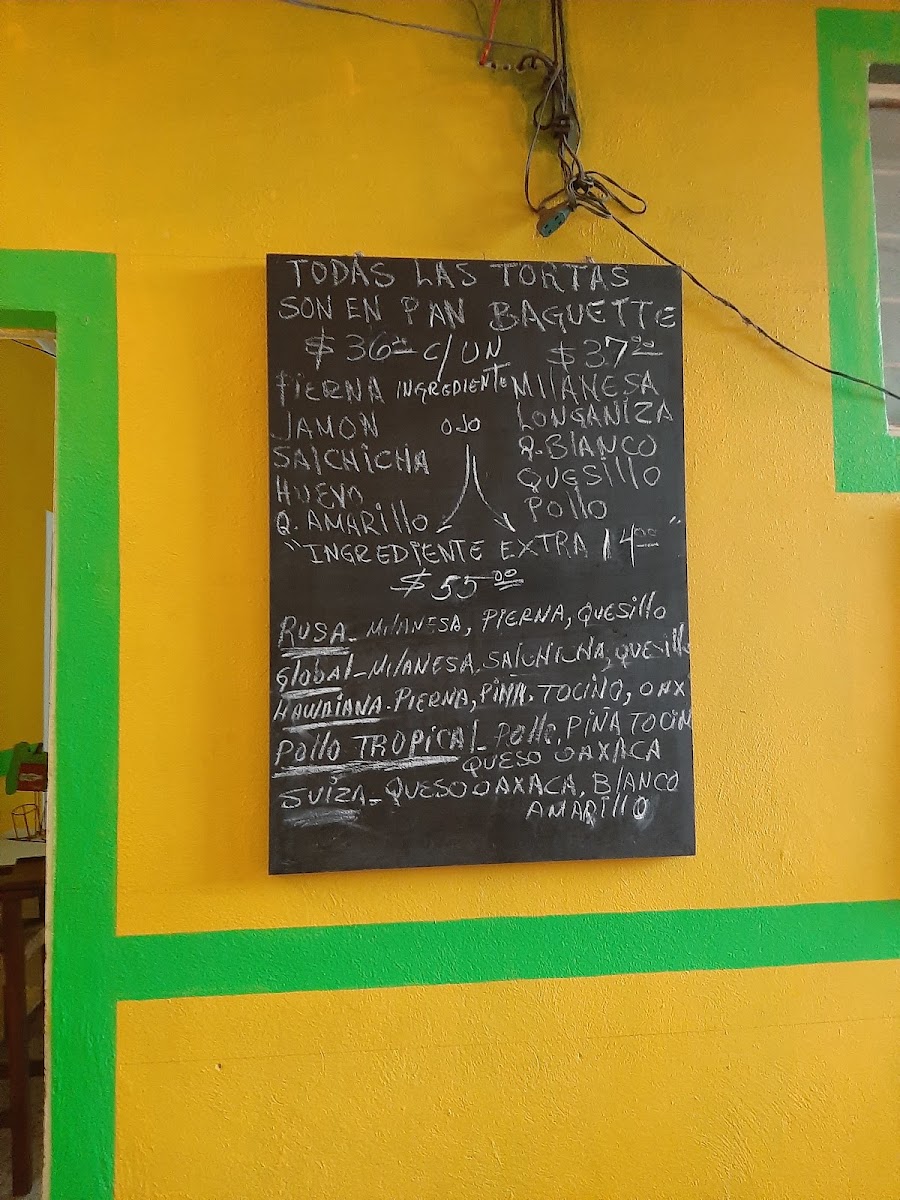 TODAS LAS TORTAS
SON EN PAN BAGUETTE
$36.00 C/UN INGREDIENTE
PIERNA
JAMON
SAlCHiCHA
HUEVO
Q. AMARillO
OJO
$37.00
MilANESA
LONGANiZA
Q. BlANCO
QUESillO
Pollo
"INGREDiENTE EXTRA 14.00"
$55.00
RUSA - MilANESA, PiERNA, QUESillo
GlobAl - MilANESA. SAlCHiCHA, QUESill
HAWAiANA. PiERNA, PiÑA. TOCiNO, OAX
Pollo TROPiCAl - Pollo, PiÑA TOCiN
QUESO OAXACA
SUiZA - QUESO OAXACA, BlANCO
AMARillO